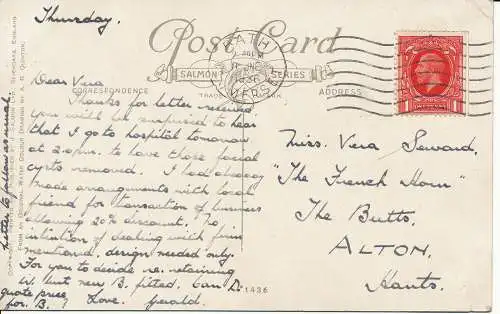 Thursday.
Post Card
BATH
SOMERSET
SALMON SERIES
TRADE MARK
CORRESPONDENCE
ADDRESS
Dear Vera
Thanks for letter received
you will be surprised to hear
that I go to hospital tomorrow
at 2.0pm. to have those facial
cysts removed. I had already
made arrangements with local
friend for transaction of business
allowing 20% discount. No
intention of dealing with firm
mentioned, design needed only.
For you to decide re. retaining
but new B. fitted. Can D.
quote price
for B.? Love. Gerald.
Letter to follow as usual
FROM AN ORIGINAL WATER COLOUR DRAWING BY A. R. QUINTON.
SEVENOAKS, ENGLAND
1436
Miss. Vera Seward.
"The French Horn"
The Butts.
ALTON.
Hants.
1